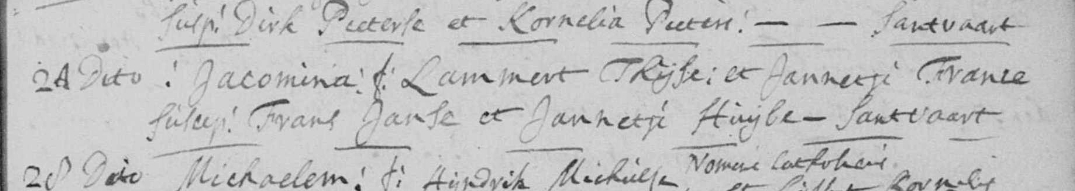 Susp! Dirk Peeterse et Kornelia Peeters! — — Santvaart
24 Dito : Jacomina: f: Lammert Thijse: et Jannetje Franse
Suscep! Frans Janse et Jannetje Huijbe — Santvaart
28 Dito Michaelem: f: Hijndrik Michielse Nomine Catholici
et Kornelis